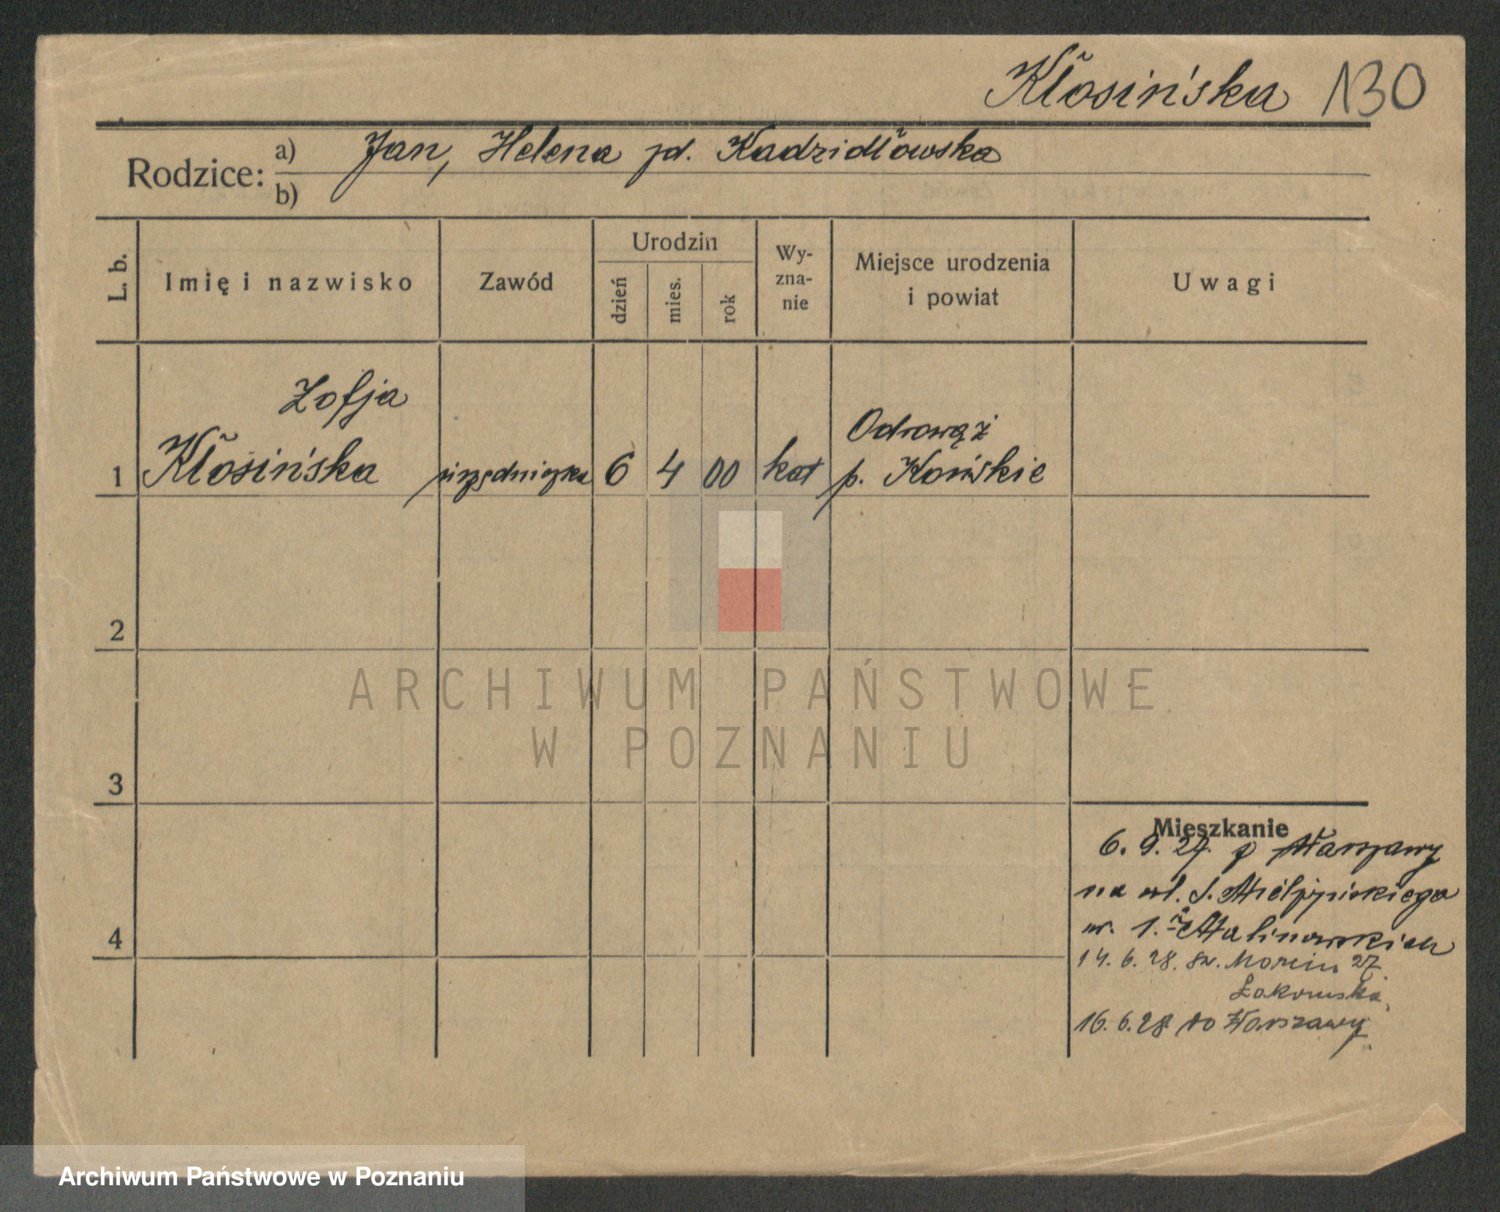 Kłosińska 130
Rodzice: a) Jan, Helena zd. Kadzidłowska
b)
L. b.
Imię i nazwisko
Zawód
Urodzin
dzień
mies.
rok
Wy-
zna-
nie
Miejsce urodzenia
i powiat
Uwagi
Zofja
Kłosińska
1
urzędniczka
6 4 00
kat
Odrowąż
p. Końskie
2
3
4
Mieszkanie
6. 9. 27. z Warszawy
na ul. S. Mielżyńskiego
nr. 1. Malinowskich
14. 6. 28. św. Marcin 27
16. 6. 28 do Warszawy
ARCHIWUM PAŃSTWOWE
W POZNANIU
Archiwum Państwowe w Poznaniu